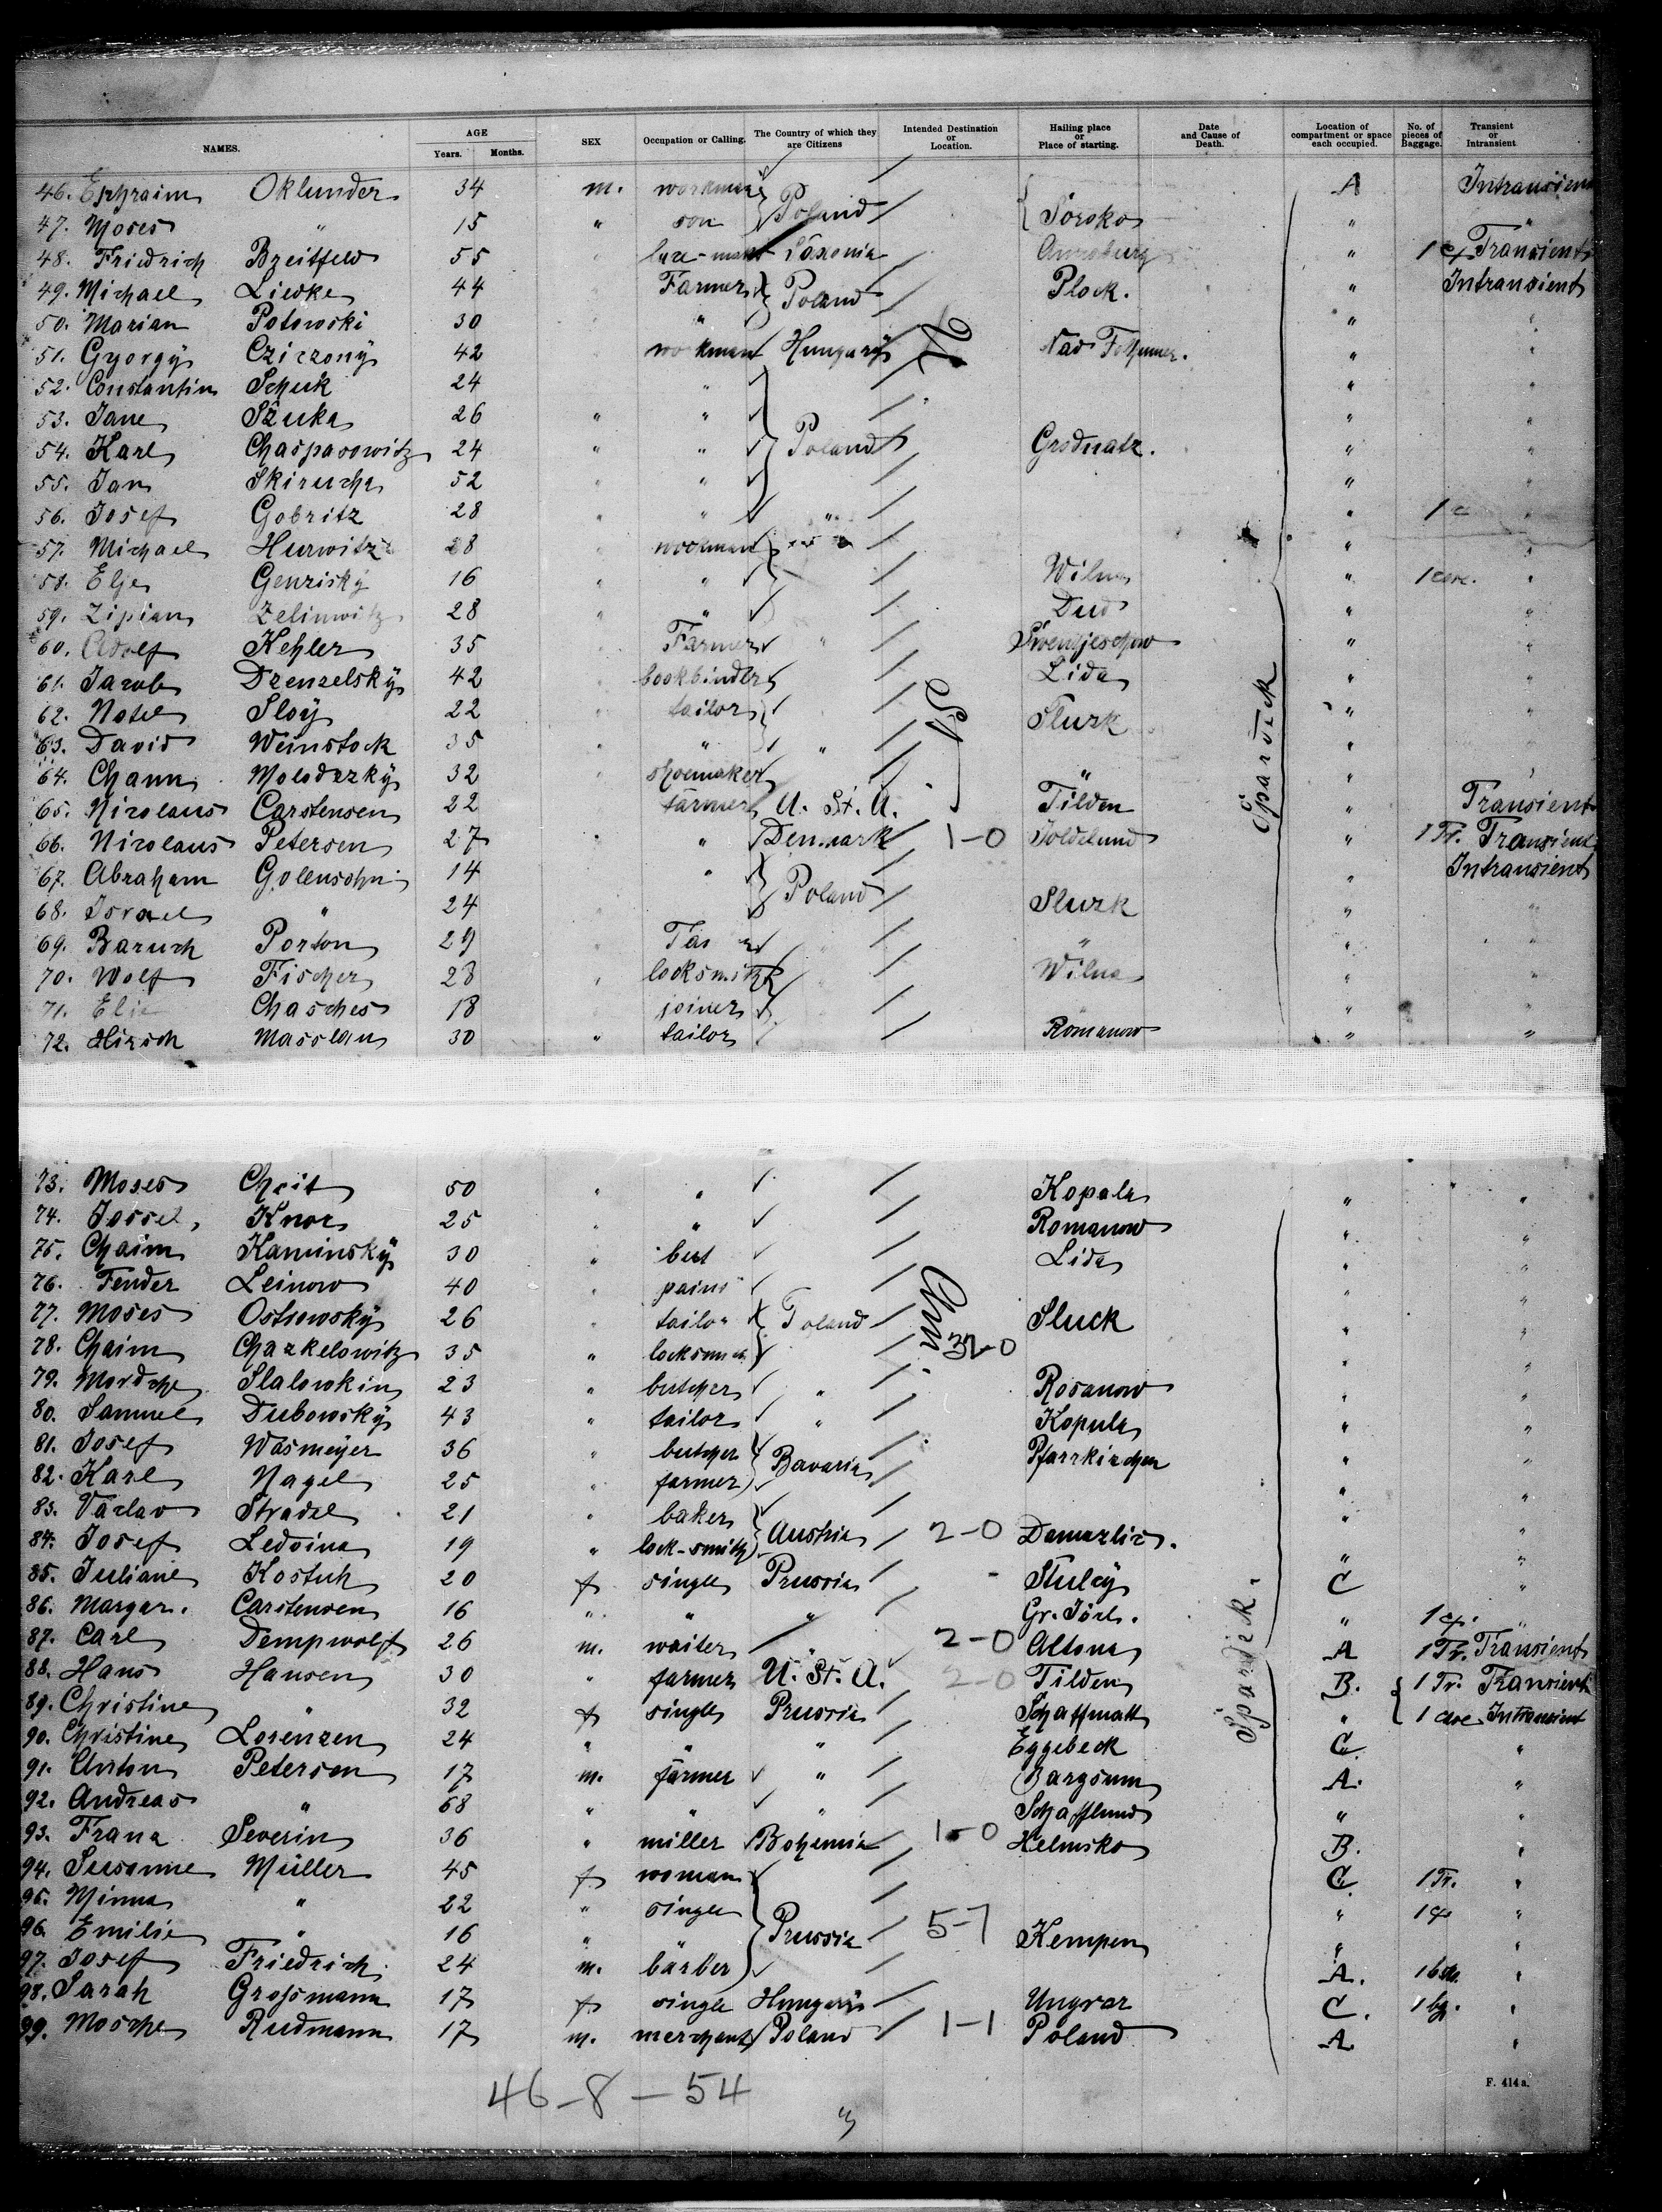 NAMES. AGE Years. Months. SEX Occupation or Calling. The Country of which they are Citizens Intended Destination or Location. Hailing place or Place of starting. Date and Cause of Death. Location of compartment or space each occupied. No. of pieces of Baggage. Transient or Intransient.
46. Ephraim Oklunder 34 m. workman Poland A Intransient
47. Moses " 15 " son Soroko " "
48. Friedrich Breitfeld 55 Saxonia " Transient
49. Michael Liedke 44 Farmer Poland Plock. " Intransient
50. Marian Potowski 30 " " "
51. György 42 workman Hungary Nad " "
52. Constantin Schuk 24 " " "
53. Jane Szuka 26 " " " "
54. Karl Chasparowitz 24 " " Poland Grodnatz. " "
55. Jan Skirucha 52 " " " "
56. Josef Gobritz 28 " " " " 1 c "
57. Michael Hurwitz 28 workman " "
58. Elje Genzisky 16 " " Wilna " 1 "
59. Zipian Zelinwitz 28 " " Dud " "
60. Adolf Kehler 35 Farmer " " "
61. Jacob Drenzelsky 42 bookbinder Lida " "
62. Notel Sloy 22 tailor Slurk " "
63. David Weinstock 35 " " " "
64. Chann Molodezky 32 shoemaker " " "
65. Nicolaus Carstensen 22 farmer U. St. A. Tilden " Transient
66. Nicolaus Petersen 27 " Denmark 1-0 Joldelund " 1 Tr. Transient
67. Abraham Golensohn 14 " Poland " Intransient
68. Israel " 24 Slurk " "
69. Baruch Porton 29 " " "
70. Wolf Fischer 28 locksmith Wilna " "
71. Elie Chasches 18 joiner " "
72. Hirsch Masslan 30 " tailor Romanow " "
Spardeck
73. Moses Cheit 50 " " Kopala " "
74. Jossel Knor 25 " " Romanow " "
75. Chaim Kaminsky 30 " Lida " "
76. Fender Leinow 40 " " "
77. Moses Ostrowsky 26 " tailor Poland Sluck " "
78. Chaim Chazkelowitz 35 " 32-0 " "
79. Mordche Slalowkin 23 " butcher " Rosanow " "
80. Samuel Dubowsky 43 " tailor " Kopula " "
81. Josef Wasmeyer 36 " butcher Bavaria Pfarrkirchen " "
82. Karl Nagel 25 " farmer " "
83. Vaclav Stradel 21 " baker Austria " "
84. Josef Ledvina 19 " lock-smith 2-0 Damazlic. " "
85. Juliane Kostuh 20 f single Prussia C "
86. Margar. Carstensen 16 " " " Gr. Jörl. " "
87. Carl Dempwolf 26 m. waiter 2-0 Altona A 1 Tr. Transient
88. Hans Hansen 30 " farmer U. St. A. 2-0 Tilden B. 1 Tr. Transient
89. Christine " 32 f single Prussia " 1 Intransient
90. Christine Lorenzen 24 " " " Eggebeck C. "
91. Anton Petersen 17 m. farmer " Bargsum A. "
92. Andreas " 68 " " " Schafflund " "
93. Franz Severin 36 " miller Bohemia 1-0 Helmsko B. "
94. Susanne Müller 45 f woman C. 1 Tr. "
95. Minna " 22 " single " "
96. Emilie " 16 " Prussia 5-1 Kempen " "
97. Josef Friedrich 24 m. barber A. "
98. Sarah Grossmann 17 f single Hungary Ungvar C. "
99. Mosche Rudmann 17 m. merchant Poland 1-1 Poland A. "
Spardeck.
46-8-54
F. 414a.